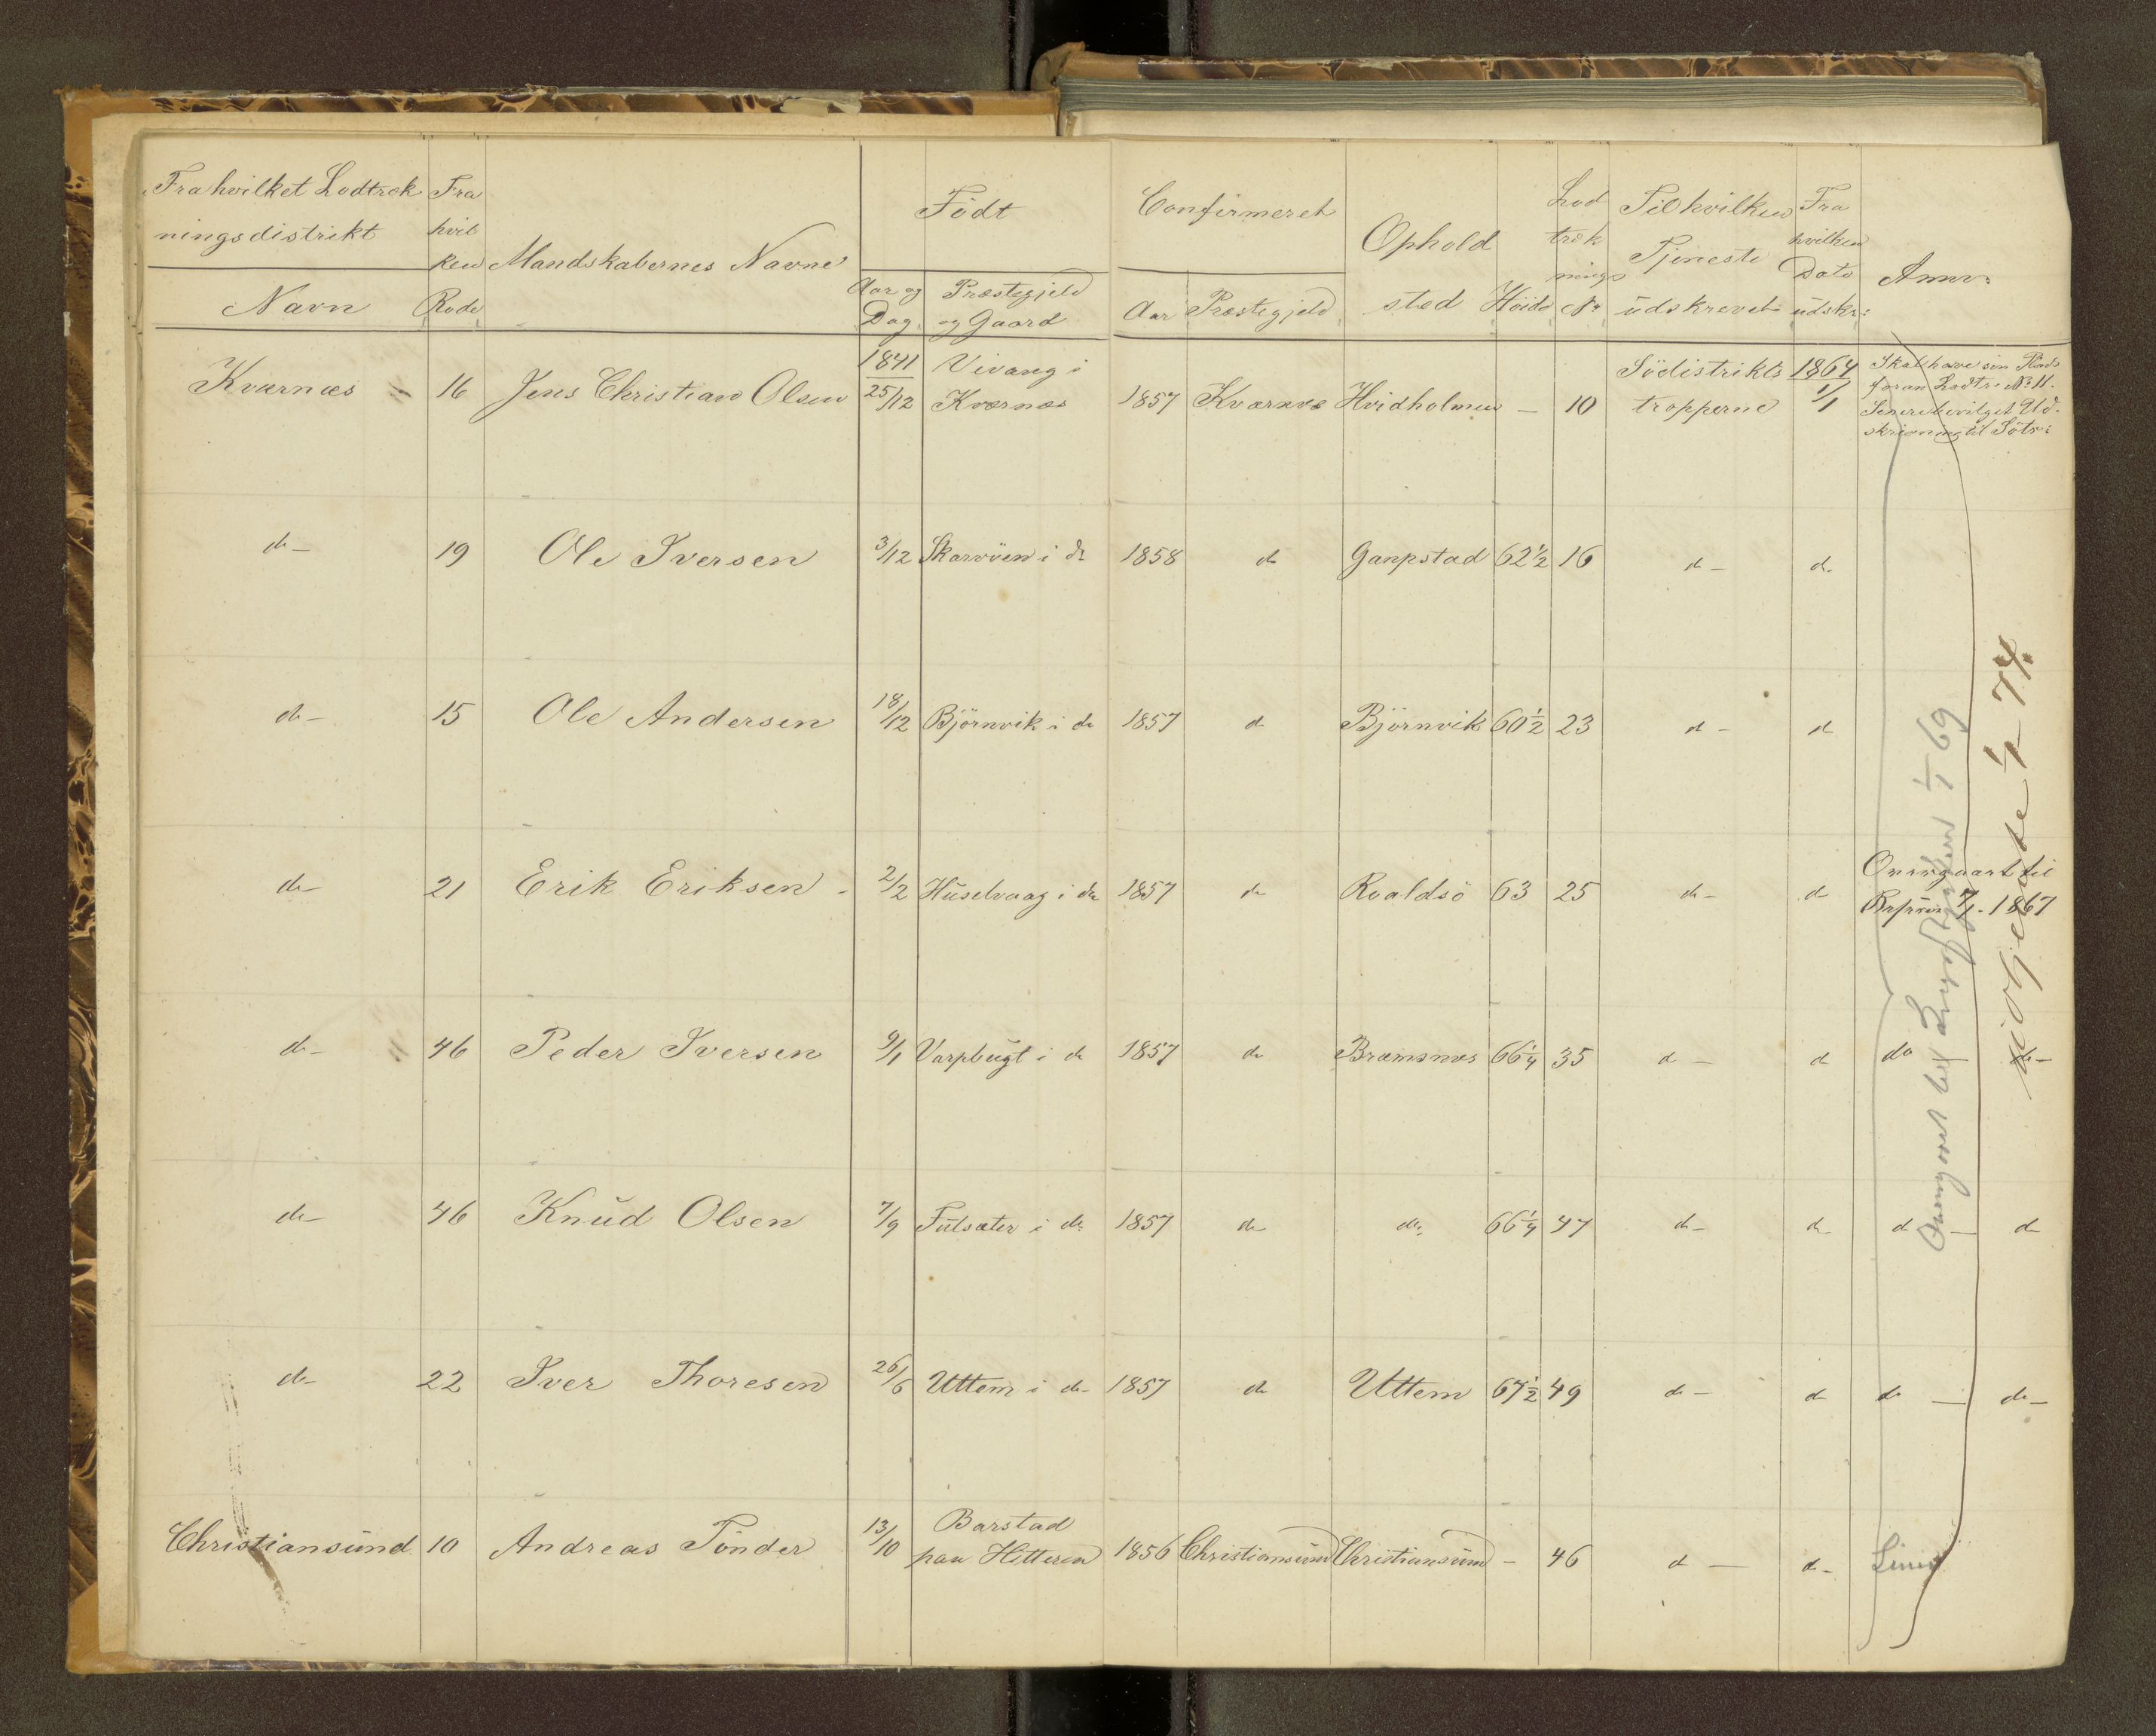 Fra hvilket Lodtræk
ningsdistrikt
Navn
Fra
hvil
ken
Rode
Mandskabernes Navne
Födt
Aar og
Dag
Præstegjeld
og Gaard
Confirmeret
Aar Præstegjeld
Ophold
sted
Höide
Lod
træk
nings
Nr
Til hvilken
Tjeneste
udskrevet
Fra
hvilken
Dato
udskr:
Anm:
Kværnæs 16 Jens Christian Olsen 1841 25/12 Vivang i Kværnæs 1857 Kværnæs Hvidholmen — 10 Södistrikts tropperne 1864 1/1
Skal have sin Plads
foran Lodtr: No 11.
Senere bevilget Ud-
skrivning til Sötr:
do 19 Ole Iversen 3/12 Skarvöen i do 1858 do Gaupstad 62½ 16 do do
do 15 Ole Andersen 18/12 Björnvik i do 1857 do Björnvik 60½ 23 do do
do 21 Erik Eriksen 2/2 Huselvaag i do 1857 do Roaldsö 63 25 do do Overgaaet til
1/1 1867
do 46 Peder Iversen 9/1 Varpbugt i do 1857 do Bremsnes 66¼ 35 do do do do
do 46 Knud Olsen 7/9 Fulsæter i do 1857 do do 66¼ 47 do do do — do
do 22 Iver Thoresen 26/6 Uttem i do 1857 do Uttem 67½ 49 do do do — do
Christiansund 10 Andreas Tönder 13/10 Barstad paa Hitteren 1856 Christiansund Christiansund — 46 do do Linie
Overgaaet til 1/1 69
udgjente 1/1 74.